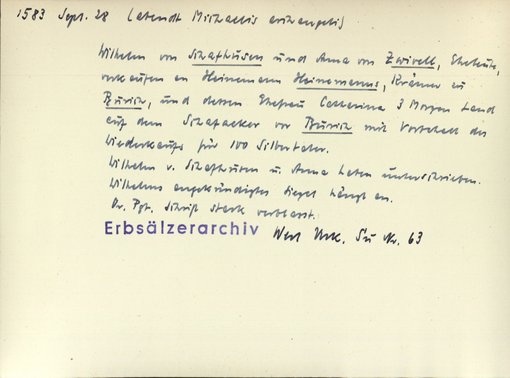 1583 Sept. 28 (avendt Michaelis archangeli)
Wilhelm von Schafhusen und Anna von Zwivell, Eheleute,
verkaufen an Heinemann Heinemanns, Krämer zu
Burich, und dessen Ehefrau Catherina 3 Morgen Land
auf dem Schafacker vor Burich mit Vorbehalt des
Wiederkaufs für 100 Silbertaler.
Wilhelm v. Schafhusen u. Anna haben unterschrieben.
Wilhelms angekündigtes Siegel hängt an.
Or. Pgt. Schrift stark verblasst.
Erbsälzerarchiv Werl Urk. Nr. 63